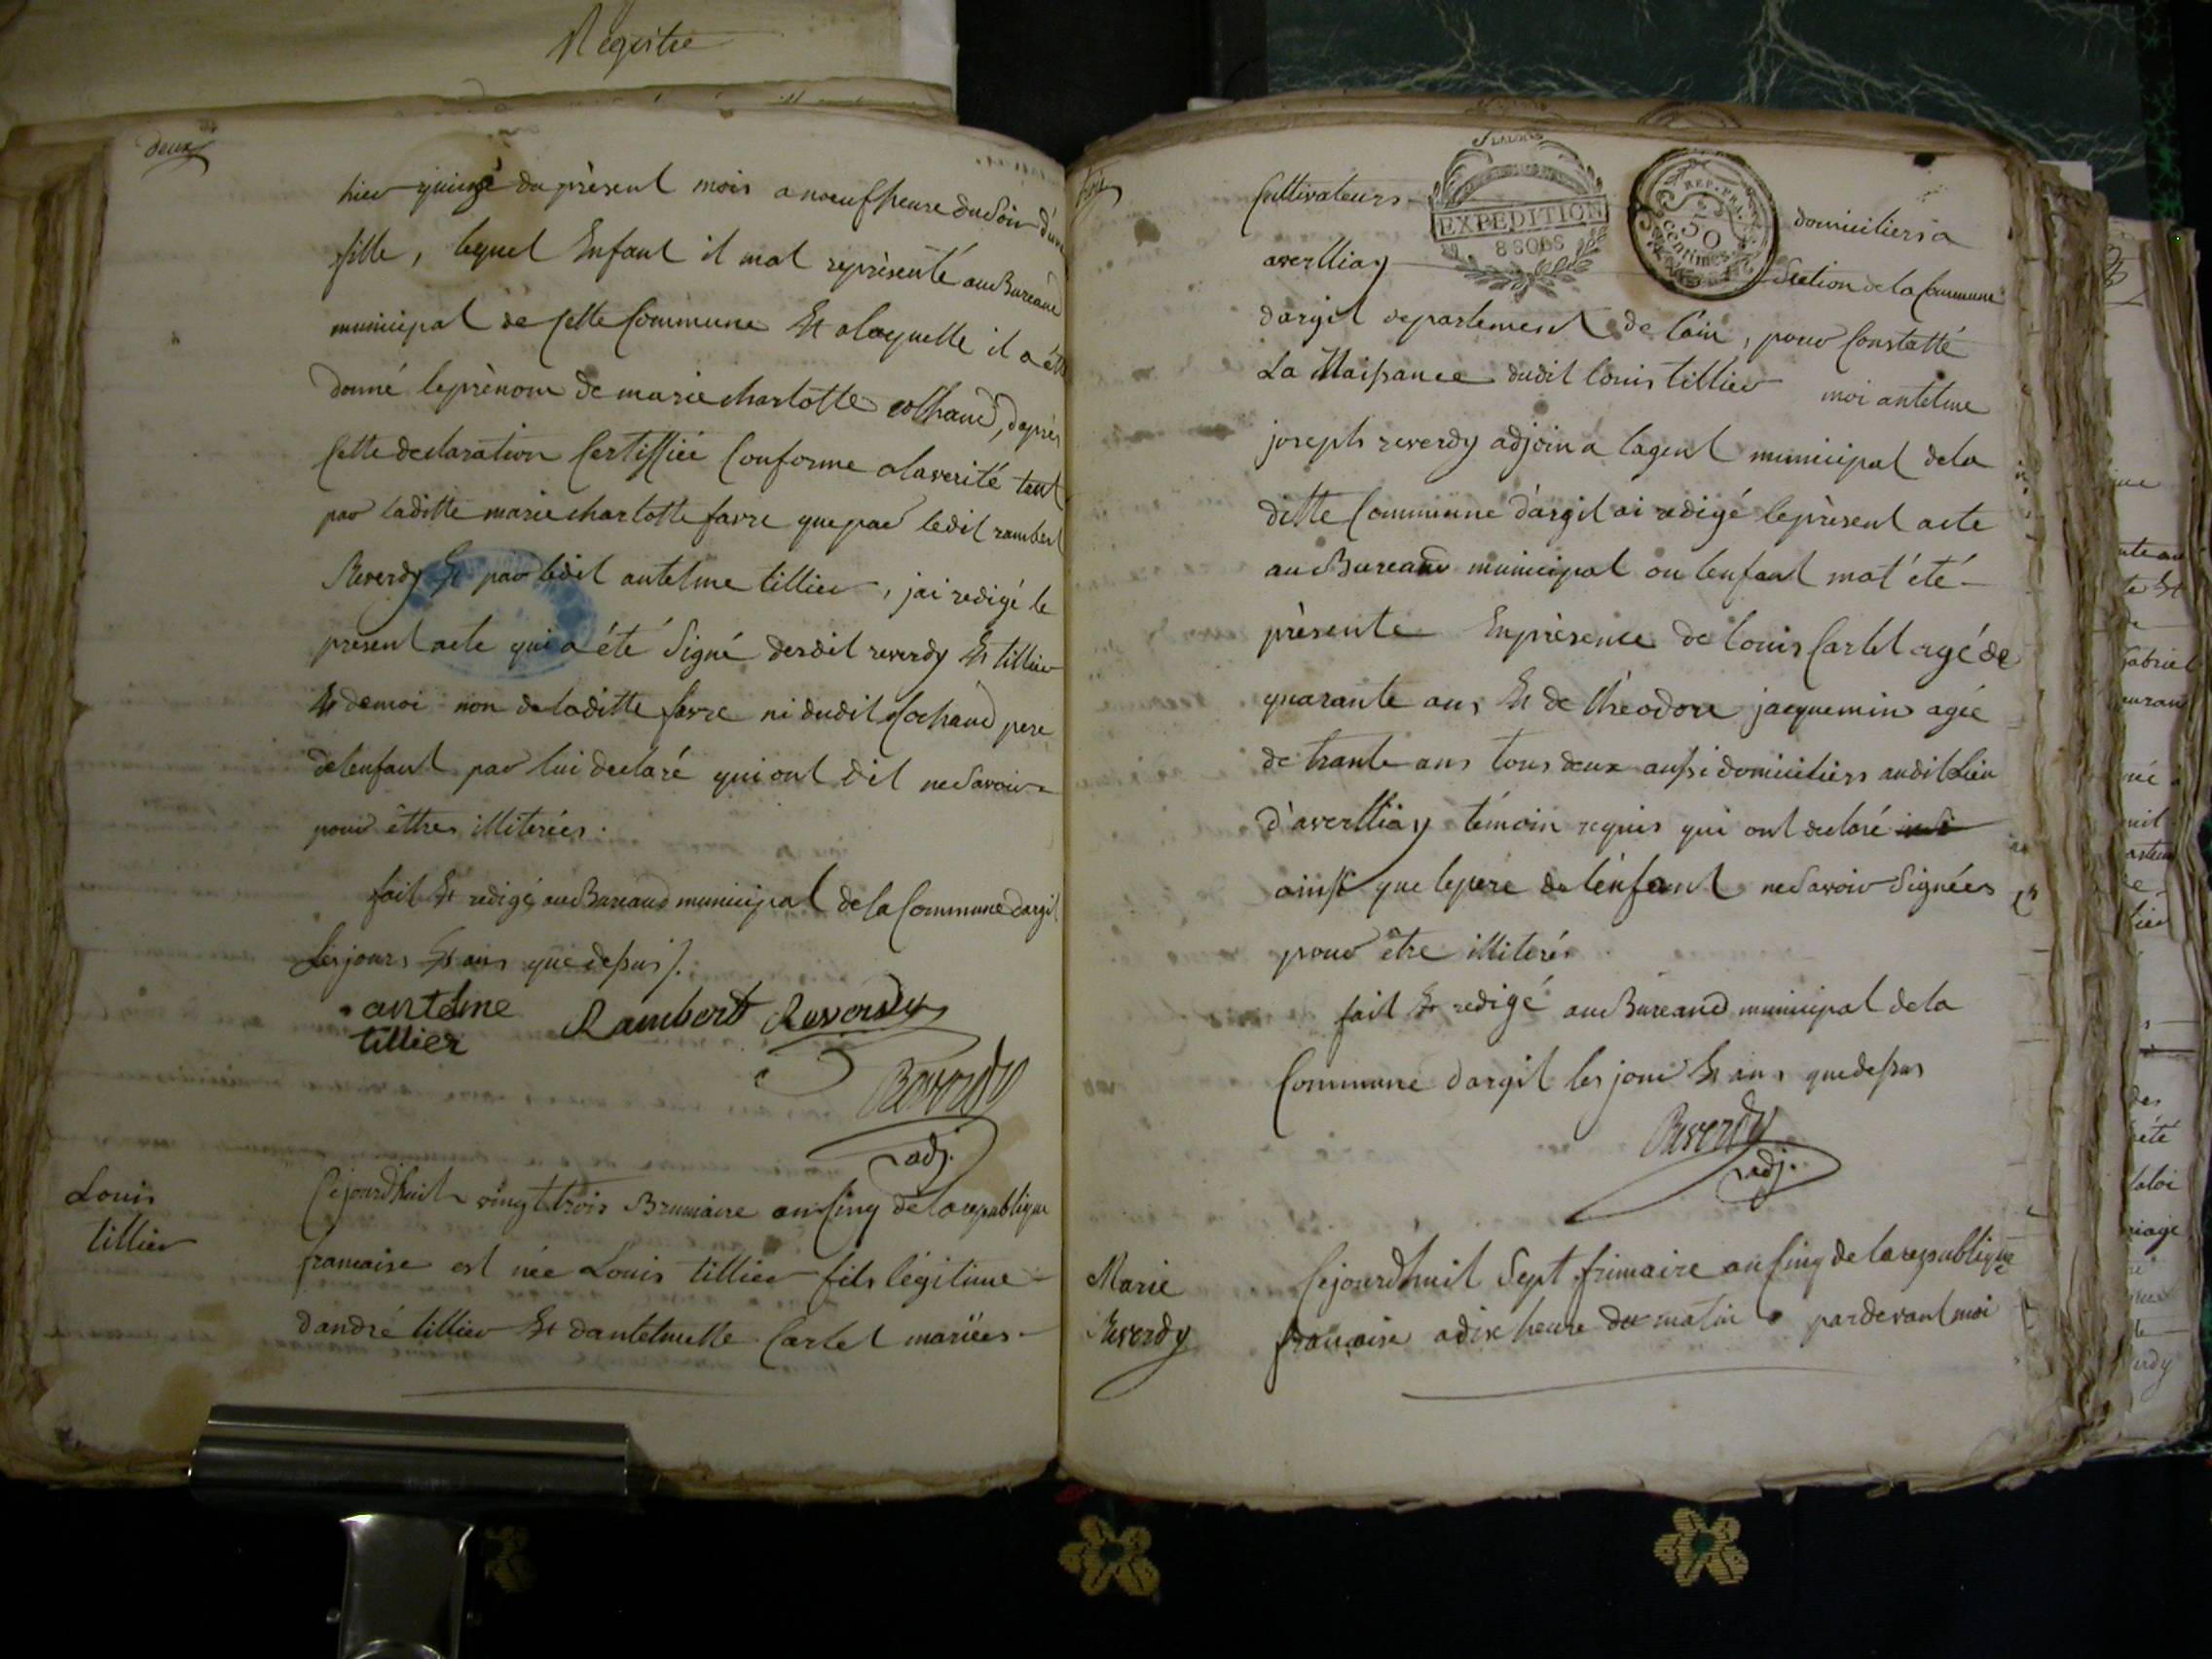 Registre
deux
hier quinze du présent mois a noeuf heure du Soir d'une
fille, lequel Enfant il mat représenté au Bureaud
municipal de Cette Commune Et alaquelle il a été
donné leprènom de marie charlotte cothaud, daprès
Cette declaration Certiffiée Conforme alaverité tent
par laditte marie charlotte favre que par ledit rambert
Reverdy Et par ledit antelme tillier, jai redigé le
present acte qui a été Signé desdit reverdy Et tillier
Et demoi non de laditte favre ni dudit Cochaud pere
delenfant par lui declaré qui ont dit ne Savoir
pour êttres illiterées.
fait Et redigé au Bureaud municipal de la Commune dargit
les jours Et ans que dessus /.
antelme
tillier
Rambert Reverdy
Reverdy
adj.
Louis
tillier
Cejourdhuit vingt trois Brumaire an Cinq de la republique
francaise est née Louis tillier fils légitime
dandré tillier Et dantelmette Cartet mariées
Cultivateurs
EXPEDITION
8 SOLS
REP. FRA.
50
centimes
domiciliers a
averlliay
Section de la Commune
dargit departement de l'ain, pour Constatté
La Naissance dudit louis tillier moi antelme
joseph reverdy adjoin a lagent municipal dela
ditte Commune dargit ai redigé leprèsent acte
au Bureaud municipal ou lenfant mat été
prèsente Enprèsence de louis Cartet agé de
quarante ans Et de théodore jacquemin agée
de trante ans tous deux aussi domiciliers audit Lieu
d'averlliay témoin requis qui ont declaré
ainsi que le pere de lénfant ne Savoir Signées
pour être illiterés
fait Et redigé au Bureaud municipal dela
Commune dargit les jour Et ans que dessus
Reverdy
adj.
Marie
Reverdy
Cejourdhuit Sept frimaire an Cinq de la republique
francaise a dix heure du matin pardevant moi